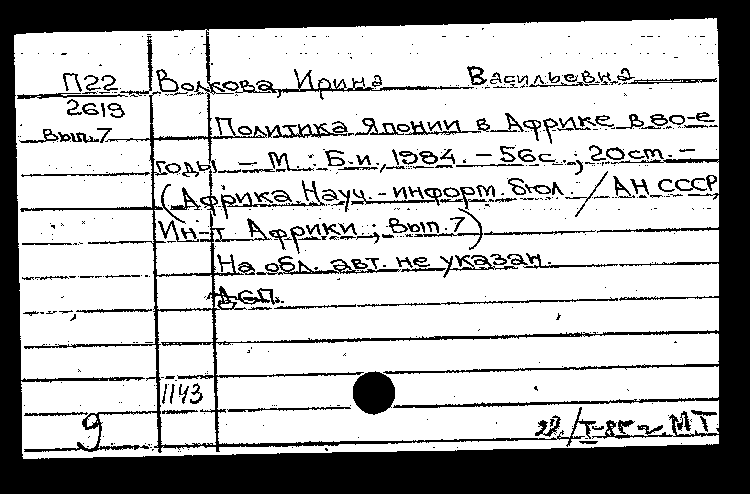 П22 Волкова, Ирина Васильевна
2619
Вып.7 Политика Японии в Африке в 80-е
годы – М. : Б.и., 1984. – 56с. ; 20см. –
(Африка Науч.-информ. бюл. / АН СССР,
Ин-т Африки ; Вып.7)
На обл. авт. не указан.
1143
9
М.Т.